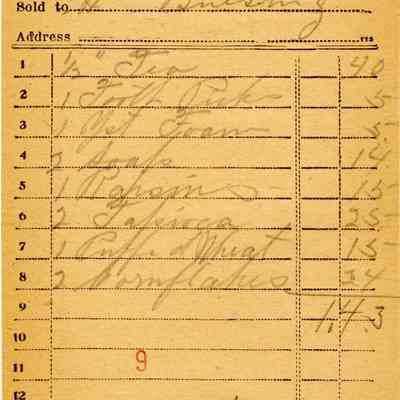 Sold to H
Address
1 ½ " Tea 40
2 1 Tooth Pick 5
3 1 Yst Foam 5
4 2 Soaps 14
5 1 Raisins 15
6 2 Tapioca 25
7 1 Puff. Wheat 15
8 2 Cornflakes 24
9 1.43
10
11 9
12